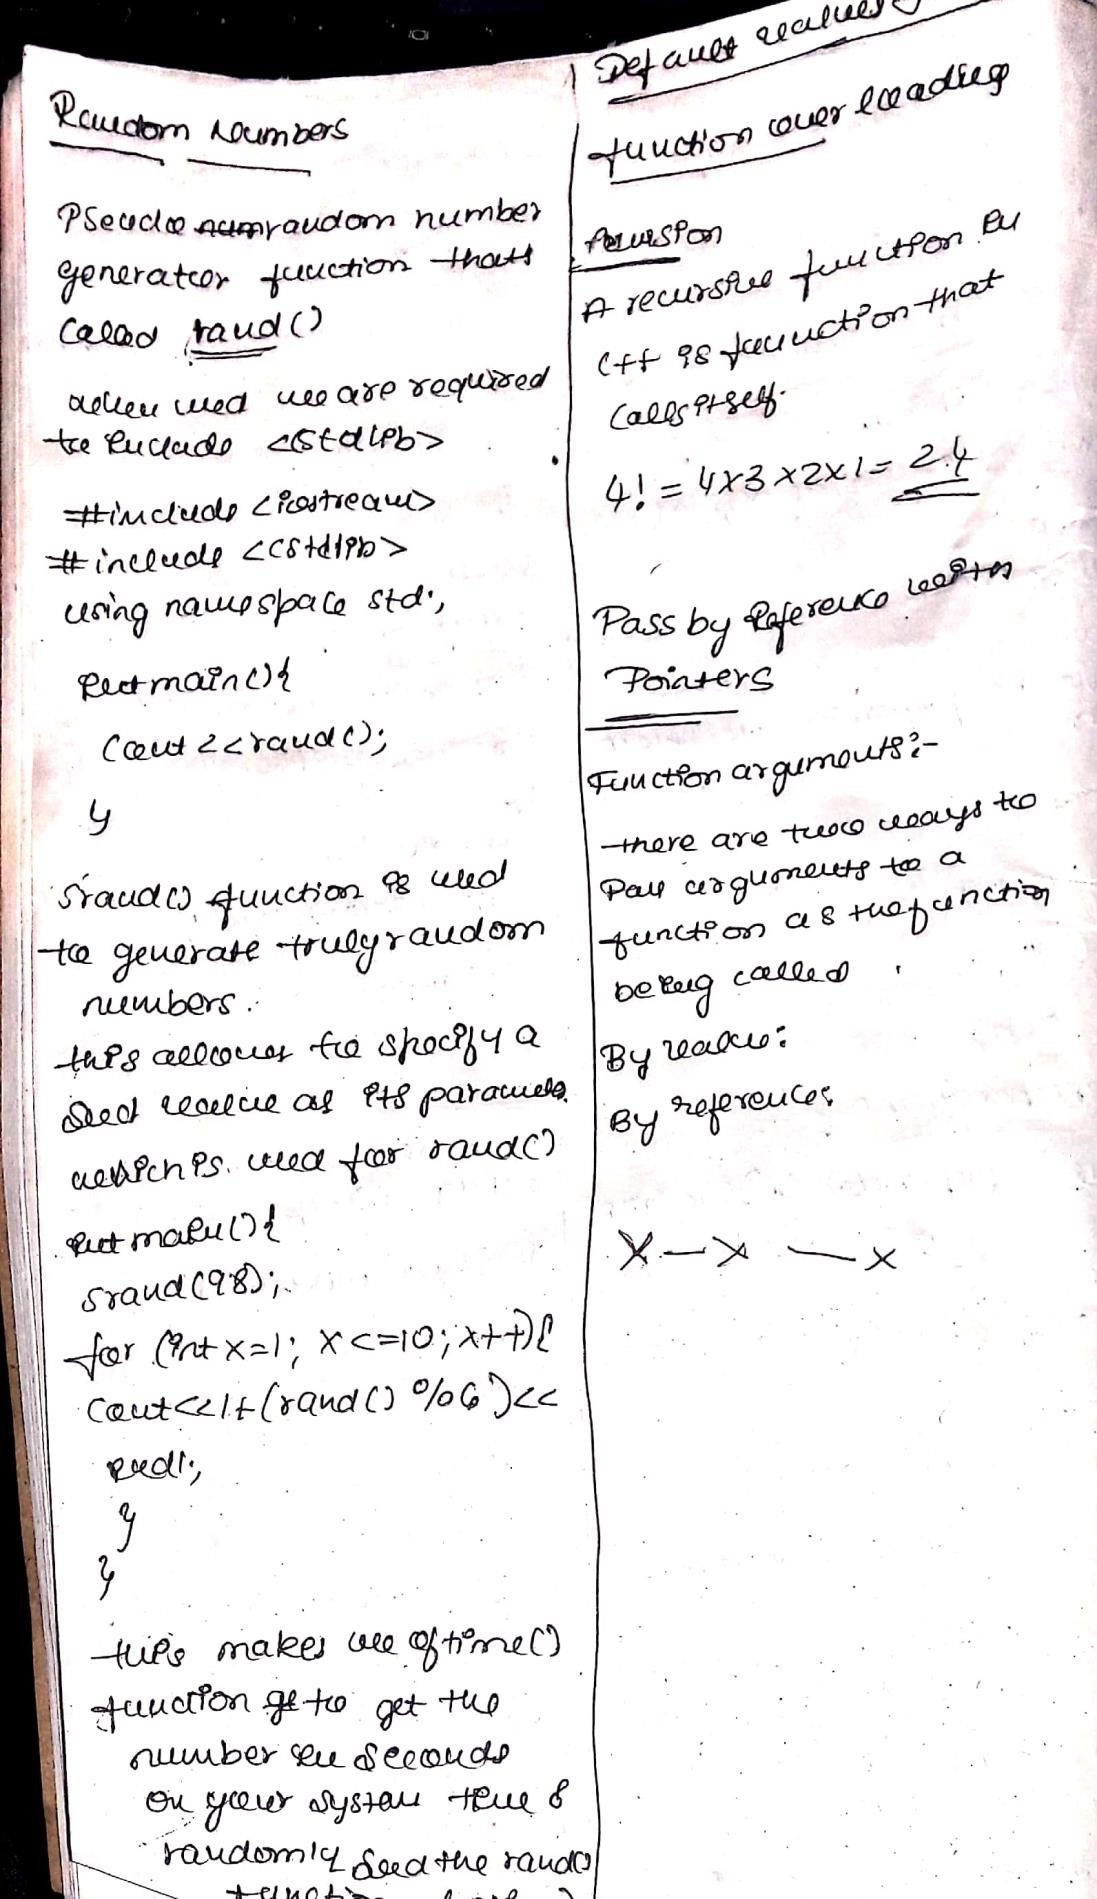 Random Numbers
Pseudo random number
generator function thats
called rand()
when used we are required
to include <cstdlib>
#include <iostream>
#include <cstdlib>
using namespace std;
int main(){
cout <<rand();
}
srand() function is used
to generate truly random
numbers.
this allows to specify a
seed value as its parameter
which is used for rand()
int main(){
srand(98);
for (int x=1; x<=10; x++){
cout<<1+(rand() %6)<<
endl;
}
}
this makes use of time()
function to get the
number in seconds
on your system time &
randomly seed the rand()
function
Default values
function over loading
Recursion
A recursive function in
C++ is function that
calls itself.
4! = 4x3x2x1= 24
Pass by Reference with
Pointers
Function arguments:-
there are two ways to
Pass arguments to a
function as the function
being called
By value:
By references
X—x —x